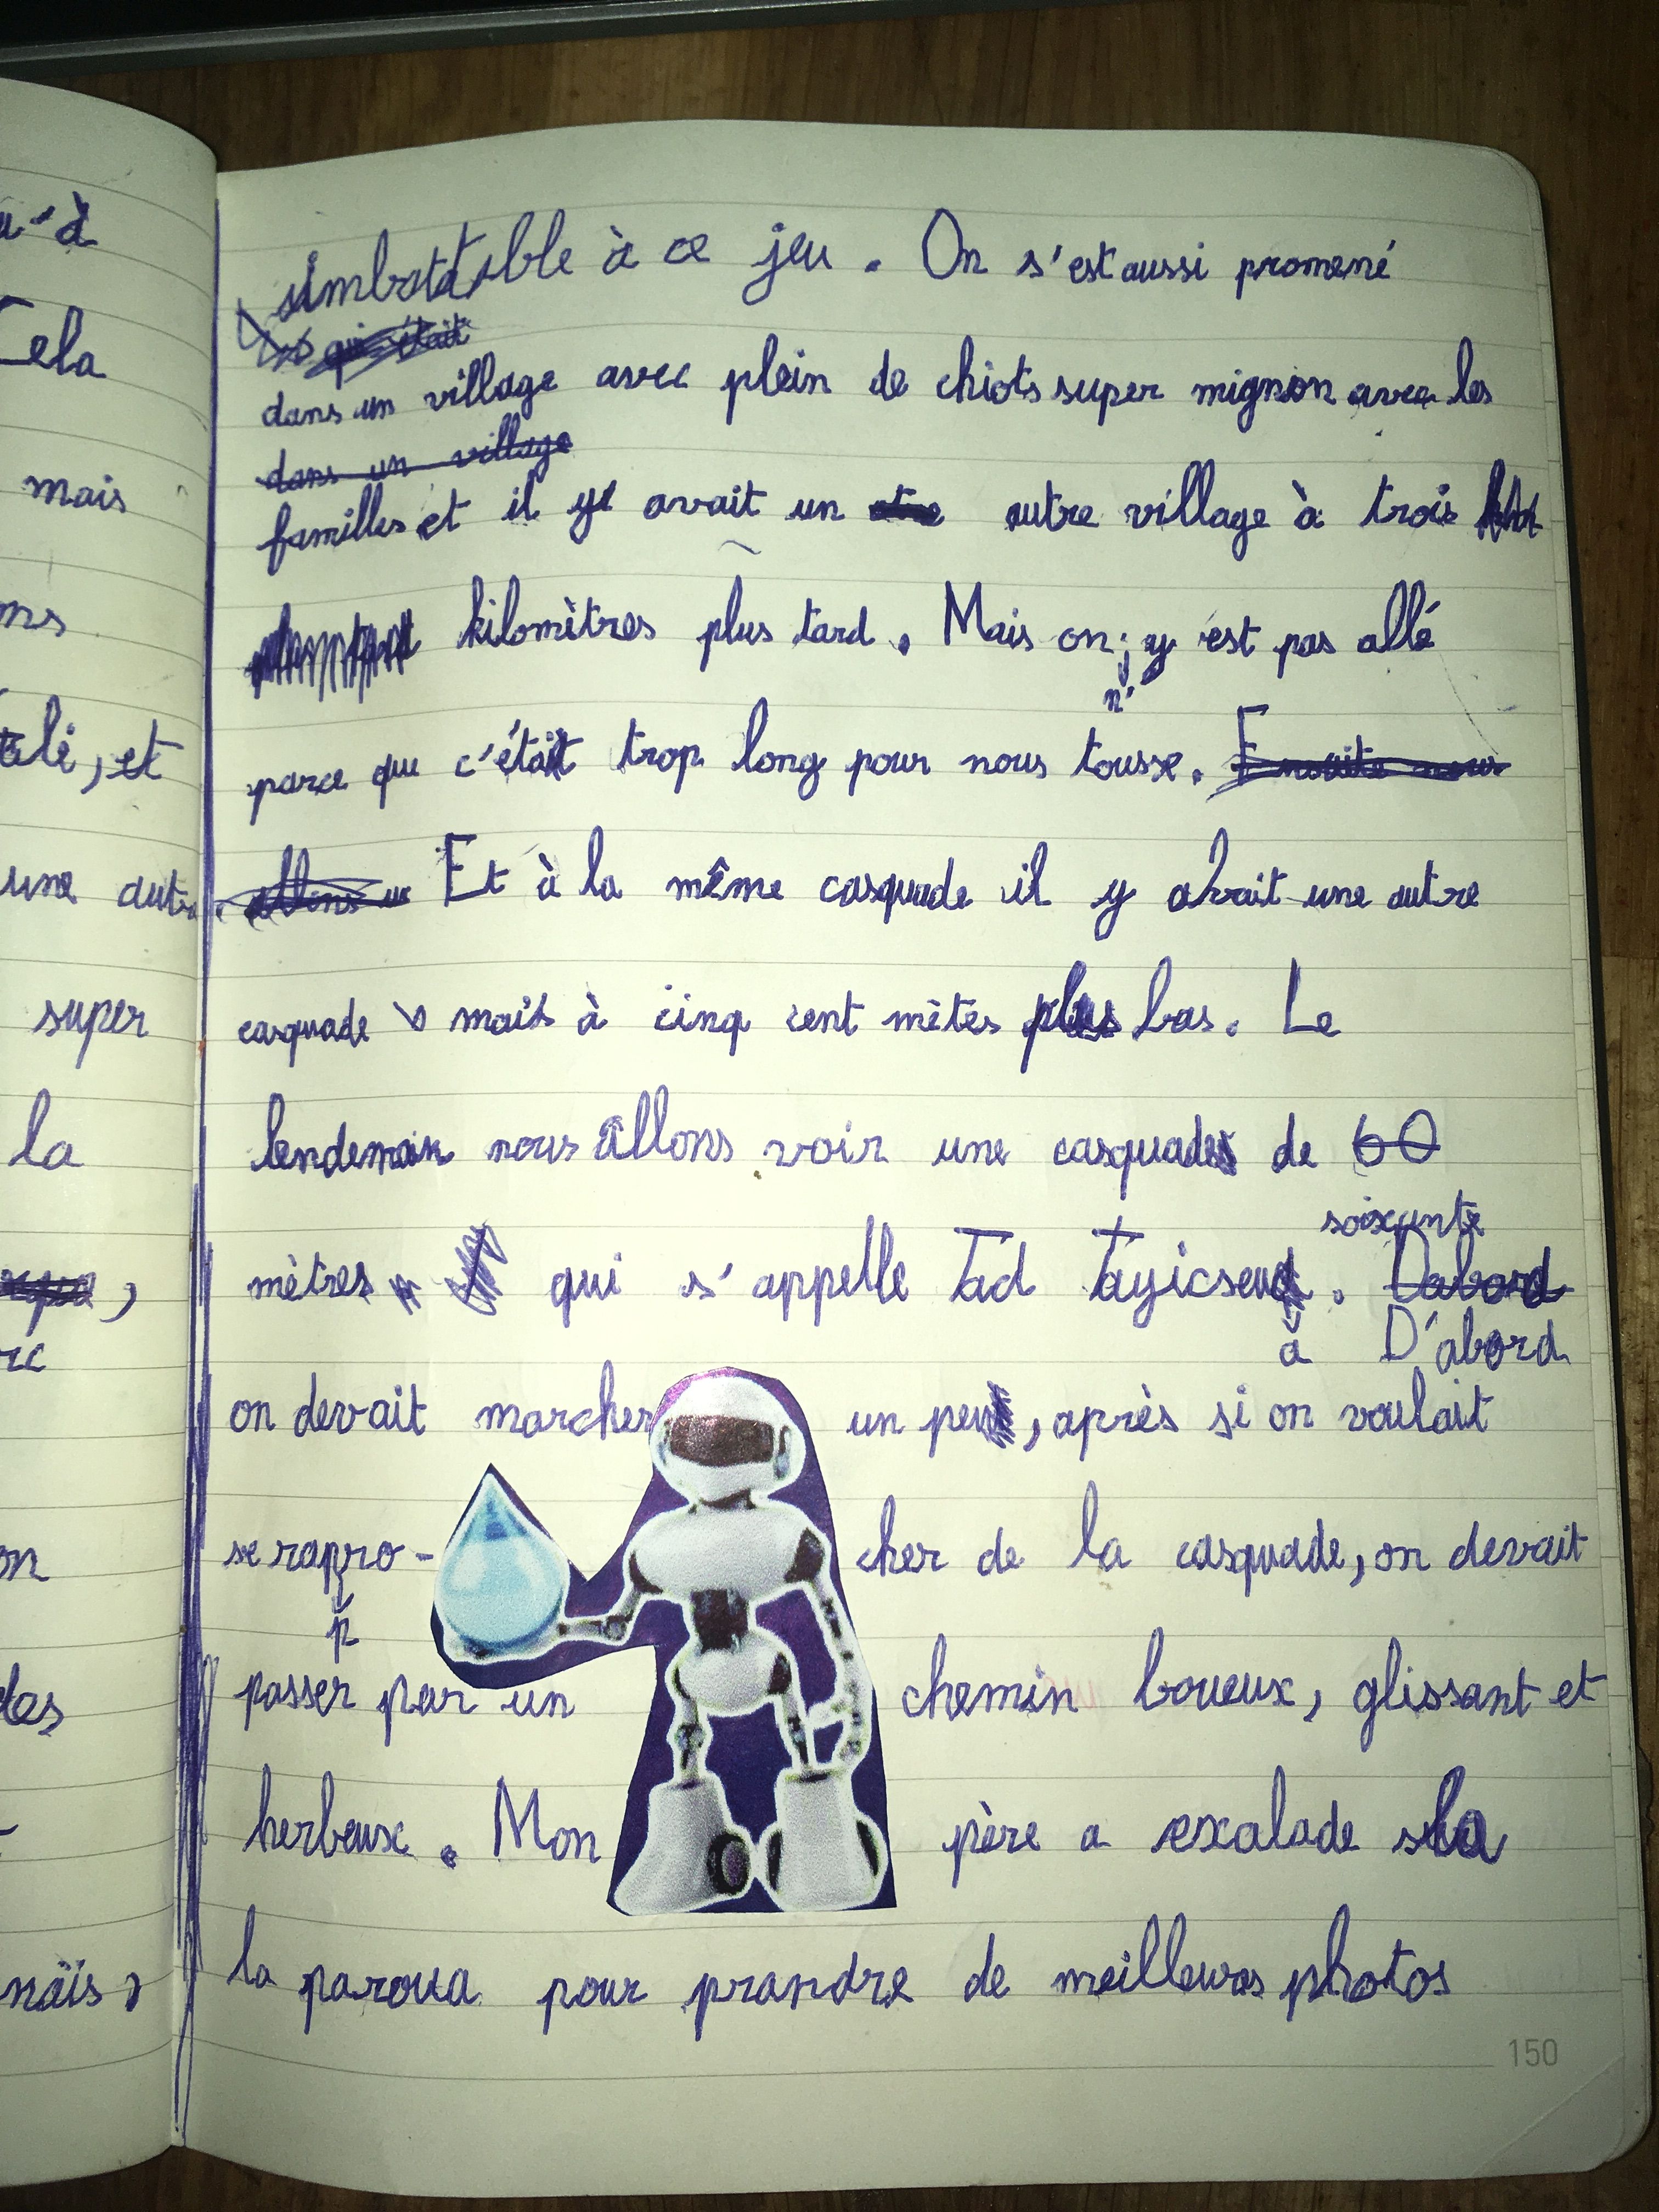 u'à
Cela
mais
ms
une autr
super
la
on
des
imbatable à ce jeu. On s'est aussi promené
qui était
dans un village avec plein de chiots super mignon avec les
dans un village
familles et il y avait un autre village à trois
kilomètres plus tard. Mais on y est pas allé
n'
parce que c'était trop long pour nous tousse. Ensuite nous
allons Et à la même casquade il y avait une autre
casquade mais à cinq cent mètes plus bas. Le
lendemain nous allons voir une casquade de 60
soixante
mètres qui s'appelle Tad Tayicseua. Dabord
a D'abord
on devait marcher un peu, après si on voulait
se rapro- cher de la casquade, on devait
p
passer par un chemin boueux, glissant et
herbeux. Mon père a exalade la
la paroua pour prandre de meilleures photos
150